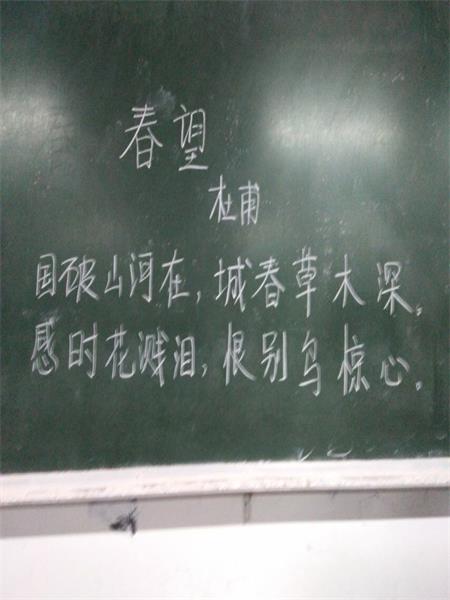 春望
杜甫
国破山河在，城春草木深。
感时花溅泪，恨别鸟惊心。